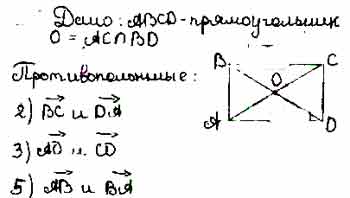 Дано: ABCD-прямоугольник
O = AC∩BD
Противоположные:
2) BC и DA
3) AO и CD
5) AB и BA
B C
O
A D